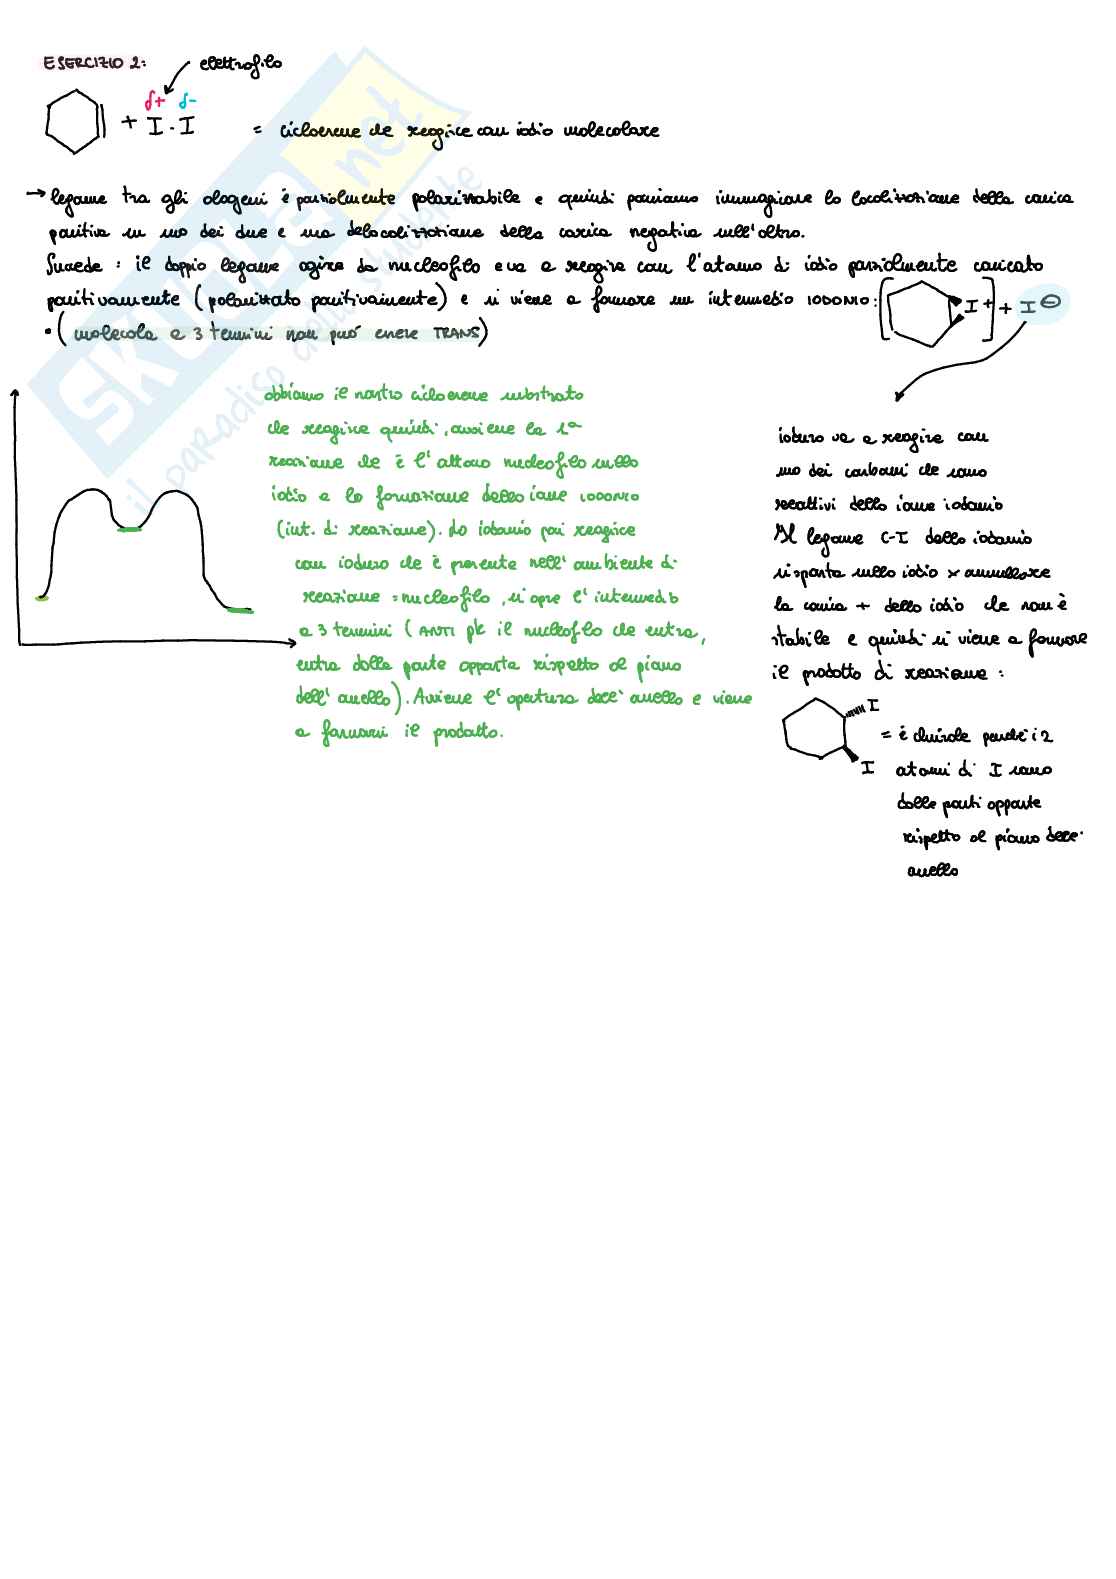 ESERCIZIO 2:
elettrofilo
δ+ δ-
+ I - I
= cicloesene che reagisce con iodio molecolare
→ legame tra gli alogeni è parzialmente polarizzabile e quindi possiamo immaginare la localizzazione della carica
positiva su uno dei due e una delocalizzazione della carica negativa sull'altro.
Succede: il doppio legame agisce da nucleofilo e va a reagire con l'atomo di iodio parzialmente caricato
positivamente (polarizzato positivamente) e si viene a formare un intermedio IODONIO:
I + + I ⊖
• (molecola a 3 termini non può essere TRANS)
abbiamo il nostro cicloesene substrato
che reagisce quindi, avviene la 1ª
reazione che è l'attacco nucleofilo sullo
iodio e la formazione dello ione IODONIO
(int. di reazione). Lo iodonio poi reagisce
con ioduro che è presente nell'ambiente di
reazione = nucleofilo, si apre l'intermedio
a 3 termini (ANTI pk il nucleofilo che entra,
entra dalla parte opposta rispetto al piano
dell'anello). Avviene l'apertura dell'anello e viene
a formarsi il prodotto.
ioduro va a reagire con
uno dei carboni che sono
reattivi dello ione iodonio
Il legame C-I dello iodonio
si sposta sullo iodio x annullare
la carica + dello iodio che non è
stabile e quindi si viene a formare
il prodotto di reazione:
I
I
= è chirale perché i 2
atomi di I sono
dalle parti opposte
rispetto al piano dell'
anello
skuola.net
il paradiso dello studente